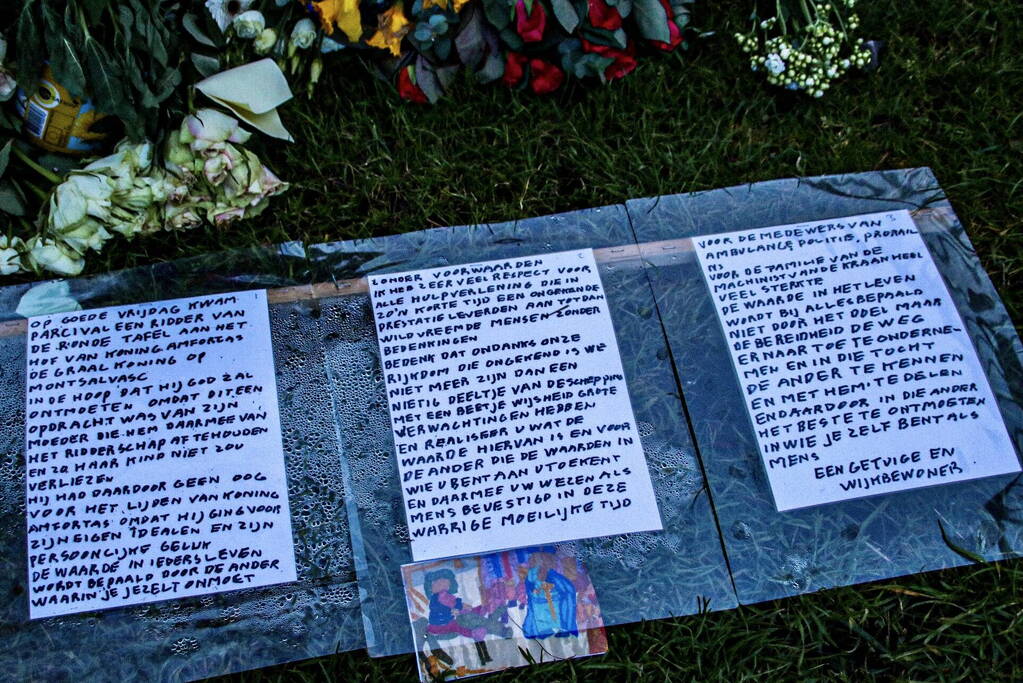 1
OP GOEDE VRIJDAG KWAM
PARCIVAL EEN RIDDER VAN
DE RONDE TAFEL AAN HET
HOF VAN KONING AMFORTAS
DE GRAAL KONING OP
MONTSALVASC
IN DE HOOP DAT HIJ GOD ZAL
ONTMOETEN OMDAT DIT EEN
OPDRACHT WAS VAN ZIJN
MOEDER DIE HEM DAARMEE VAN
HET RIDDERSCHAP AFTEHOUDEN
EN ZO HAAR KIND NIET ZOU
VERLIEZEN
HIJ HAD DAARDOOR GEEN OOG
VOOR HET LIJDEN VAN KONING
AMFORTAS OMDAT HIJ GING VOOR
ZIJN EIGEN IDEALEN EN ZIJN
PERSOONLIJKE GELUK
DE WAARDE IN IEDERS LEVEN
WORDT BEPAALD DOOR DE ANDER
WAARIN JE JEZELT ONMOET
ZONDER VOORWAARDEN
IK HEB ZEER VEEL RESPECT VOOR
ALLE HULPVERLENING DIE IN
ZO'N KORTE TIJD EEN ONGEKENDE
PRESTATIE LEVERDEN AAN TOT DAN
WILDVREEMDE MENSEN ZONDER
BEDENKINGEN
BEDENK DAT ONDANKS ONZE
RIJKDOM DIE ONGEKEND IS WE
NIET MEER ZIJN DAN EEN
NIETIG DEELTJE VAN DE SCHEPPING
MET EEN BEETJE WIJSHEID GROTE
VERWACHTINGEN HEBBEN
EN REALISEER U WAT DE
WAARDE HIERVAN IS EN VOOR
DE ANDER DIE DE WAARDEN IN
WIE U BENT AAN U TOEKENT
EN DAARMEE UW WEZEN ALS
MENS BEVESTIGD IN DEZE
WARRIGE MOEILIJKE TIJD
3
VOOR DE MEDEWERS VAN
AMBULANCE, POLITIE, PRORAIL
NS
VOOR DE FAMILIE VAN DE
MACHINIST VAN DE KRAAN HEEL
VEEL STERKTE
DE WAARDE IN HET LEVEN
WORDT BIJ ALLES BEPAALD
NIET DOOR HET DOEL MAAR
DE BEREIDHEID DE WEG
ER NAAR TOE TE ONDERNE-
MEN EN IN DIE TOCHT
DE ANDER TE KENNEN
EN MET HEM TE DELEN
EN DAARDOOR IN DIE ANDER
HET BESTE TE ONTMOETEN
IN WIE JE ZELF BENT ALS
MENS
EEN GETUIGE EN
WIJKBEWONER